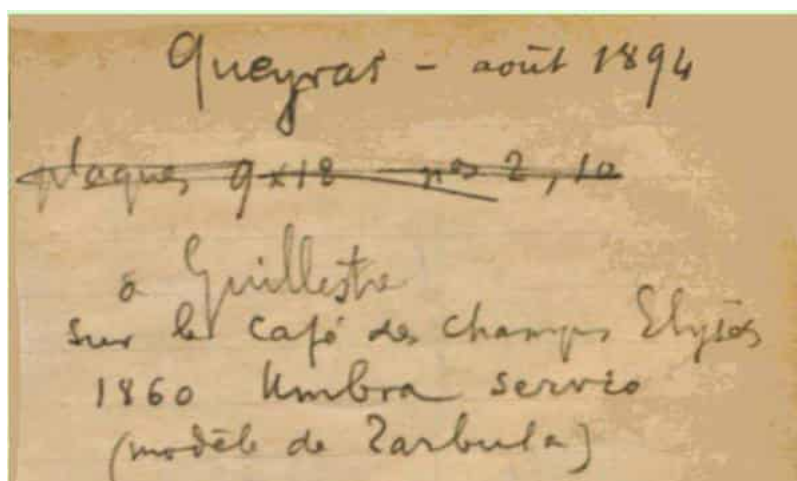 Queyras - août 1894
plaques 9x18 nos 2, 10
à Guillestre
sur le café des champs Elysés
1860 Umbra servio
(modèle de Zarbula)